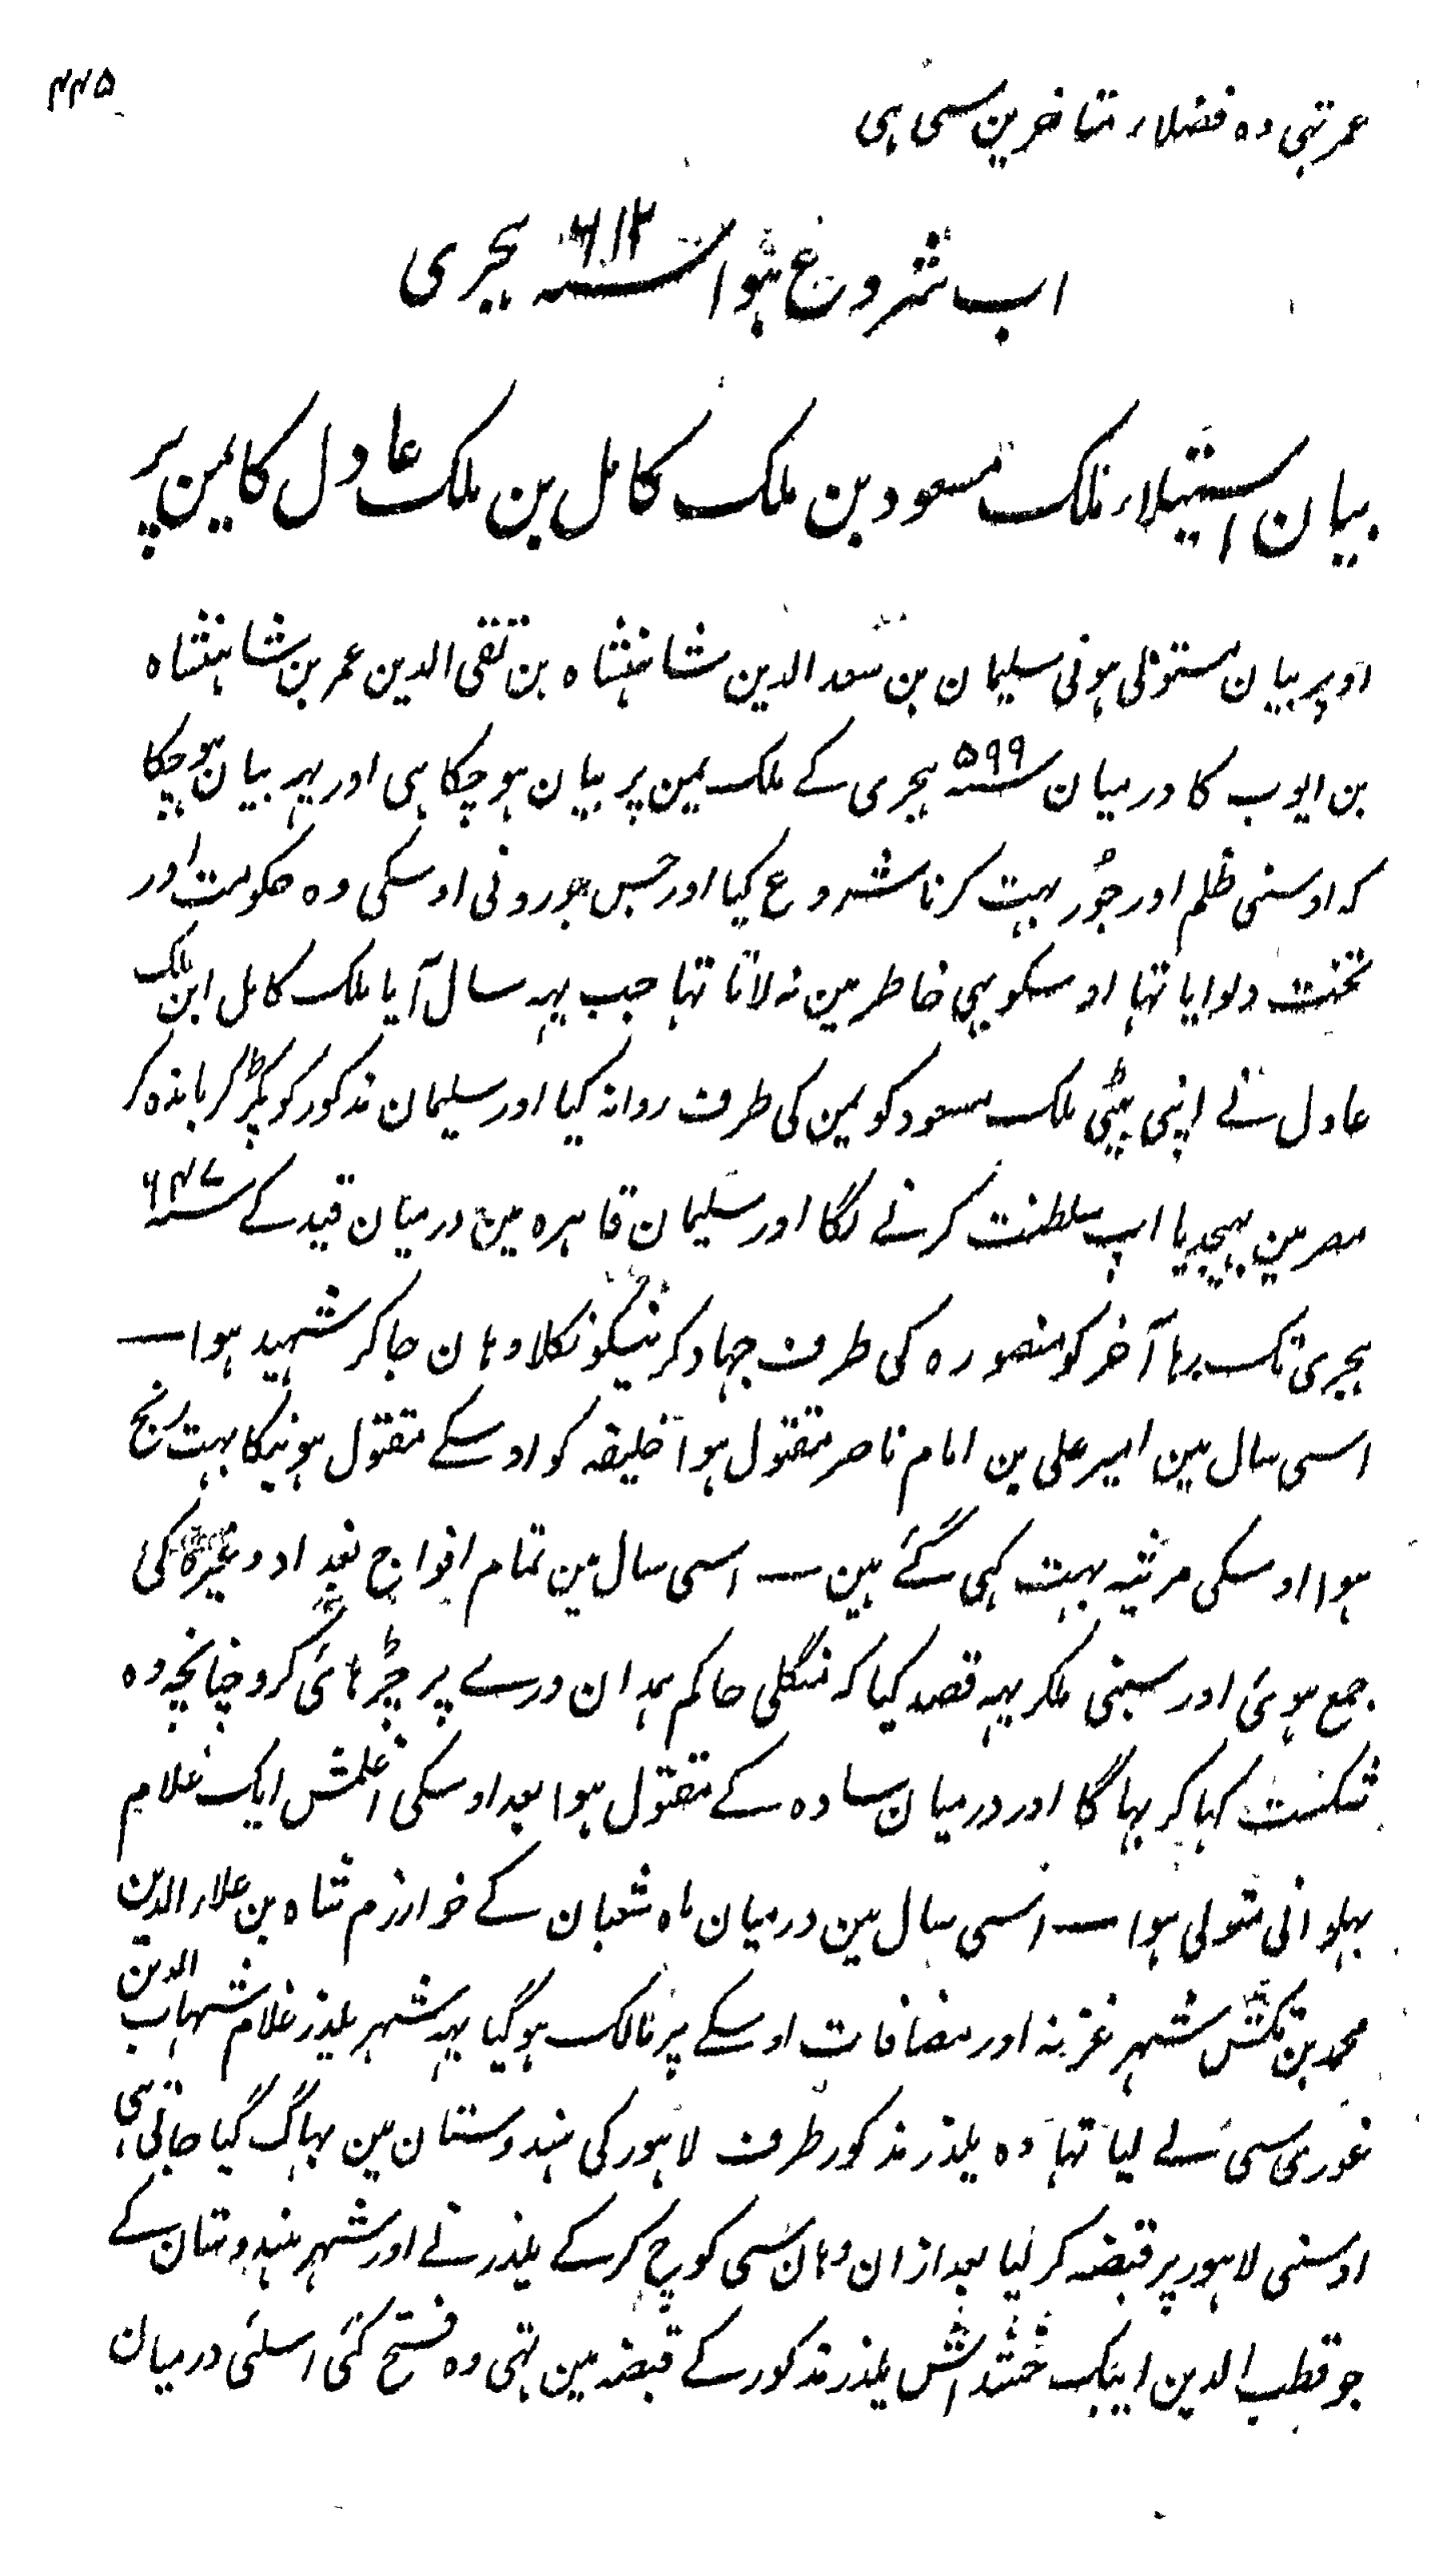 ۴۴۵
عمر تہی وہ فضلاء متاخرین سی ہی
اب شروع ہوا سنہ ۶۱۲ ہجری
بیان استیلاء ملک مسعود بن ملک کامل بن ملک عادل کا یمن پر
اوپر بیان مستولی ہونی سلیمان بن سعد الدین شاہنشاہ بن تقی الدین عمر بن شاہنشاہ
بن ایوب کا درمیان سنہ ۵۹۹ ہجری کے ملک یمن پر بیان ہو چکا ہی اور یہہ بیان ہو چکا
کہ اوسنی ظلم اور جور بہت کرنا شروع کیا اور جس جورو نی اوسکی وہ حکومت اور
تخت دلوایا تہا اوسکو بہی خاطر مین نہ لاتا تہا جب یہہ سال آیا ملک کامل ابن ملک
عادل نے اپنی بیٹی ملک مسعود کو یمن کی طرف روانہ کیا اور سلیمان مذکور کو پکڑ کر باندہ کر
مصر مین بہیجدیا اپ سلطنت کرنے لگا اور سلیمان قاہرہ مین درمیان قید کے سنہ ۶۴۷
ہجری تک رہا آخر کو منصورہ کی طرف جہاد کرنیکو نکلا وہان جا کر شہید ہوا —
اسی سال مین امیر علی بن امام ناصر مقتول ہوا خلیفہ کو اوسکے مقتول ہونیکا بہت رنج
ہوا اوسکی مرثیہ بہت کہی گئے ہین — اسی سال مین تمام افواج بغداد وغیرہ کی
جمع ہوئی اور سبنی ملکر یہہ قصد کیا کہ منگلی حاکم ہمدان ورے پر چڑہائی کرو چنانچہ وہ
شکست کہا کر بہاگا اور درمیان ساوہ کے مقتول ہوا بعد اوسکی اغلمش ایک غلام
پہلوانی متولی ہوا — اسی سال مین درمیان ماہ شعبان کے خوارزم شاہ بن علاء الدین
محمد بن تکش شہر غزنہ اور مضافات اوسکے پر مالک ہو گیا یہہ شہر یلدز غلام شہاب الدین
غوری سی لے لیا تہا وہ یلدز مذکور طرف لاہور کی ہندوستان مین بہاگ گیا جاتی ہی
اوسنی لاہور پر قبضہ کر لیا بعد ازان وہان سی کوچ کر کے یلدز نے اور شہر ہندوستان کے
جو قطب الدین ایبک خشداش یلدز مذکور کے قبضہ مین تہی وہ فتح کئی اسلئی درمیان